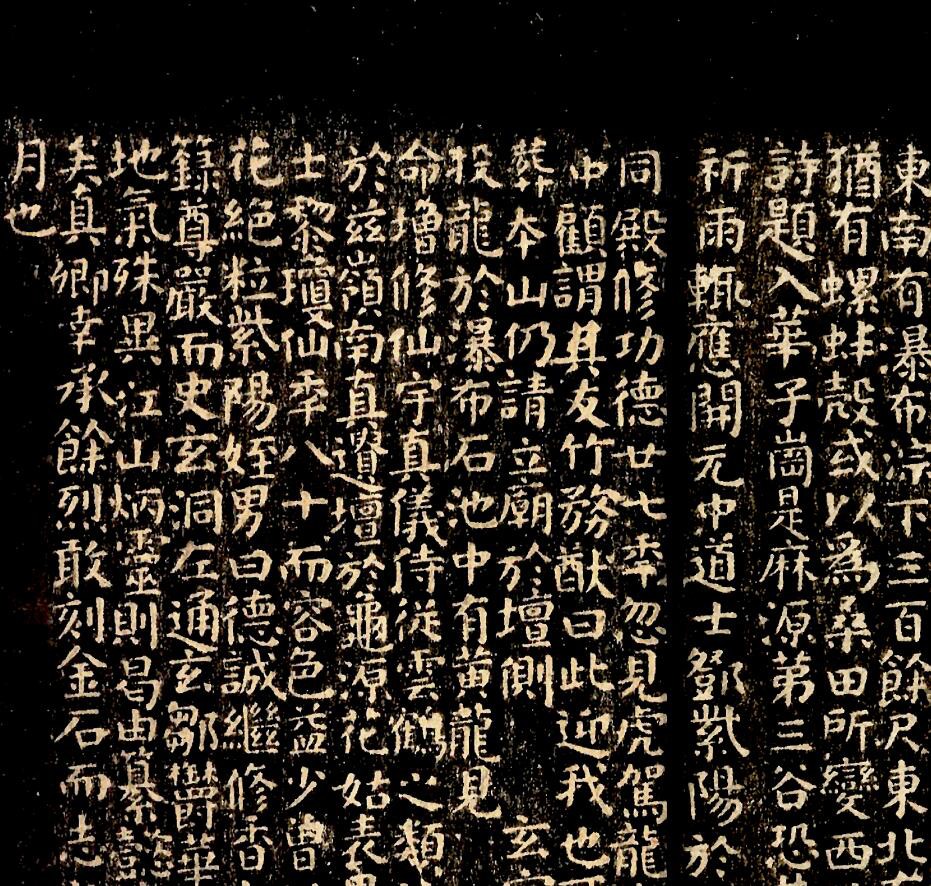 東南有瀑布淙下三百餘尺東北
猶有螺蚌殼或以為桑田所變西
詩題入華子崗是麻源第三谷恐
祈雨輒應開元中道士鄧紫陽於
同殿修功德廿七年忽見虎駕龍
中顧謂其友竹務猷曰此迎我也
葬本山仍請立廟於壇側 玄
投龍於瀑布石池中有黃龍見
命增修仙宇真儀侍從雲鶴之類
於茲嶺南真遺壇於龜源花姑表
士黎瓊仙年八十而容色益少曾
花絕粒紫陽姪男曰德誠繼修香
籙尊嚴而史玄洞左通玄鄒鬱華
地氣殊異江山炳靈則曷由纂懿
矣真卿幸承餘烈敢刻金石而志
月也